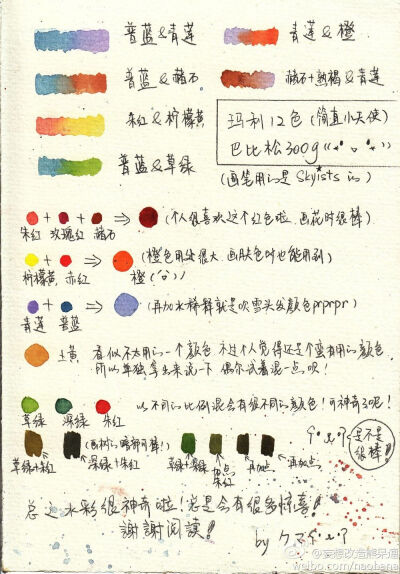 普蓝&青莲
青莲&橙
普蓝&赭石
赭石+熟褐&青莲
朱红&柠檬黄
玛利12色(简直小天使)
巴比松300g
普蓝&草绿
(画笔用的是Skyists的)
+ + ⇒ (个人很喜欢这个红色啦,画花时很棒)
朱红 玫瑰红 赭石
+ ⇒ (橙色用处很大,画肤色时也能用到)
柠檬黄,赤红 橙
+ ⇒ (再加水稀释就是吹雪头发颜色prprpr)
青莲 普蓝
土黄 看似不太用的一个颜色,不过个人觉得还是个蛮有用的颜色,
所以单独拿出来说一下,偶尔试着混一点,呗!
以不同的比例混会有很不同的颜色!可神奇了呢!
草绿 深绿 朱红
草绿+朱红 深绿+朱红 (画树的暗部可棒!) 草绿+深绿 加点朱红 再加点 再加点
是不是很棒!
总之水彩很神奇啦!总是会有很多惊喜!
謝謝阅读!!
by クマ
weibo.com/naohana